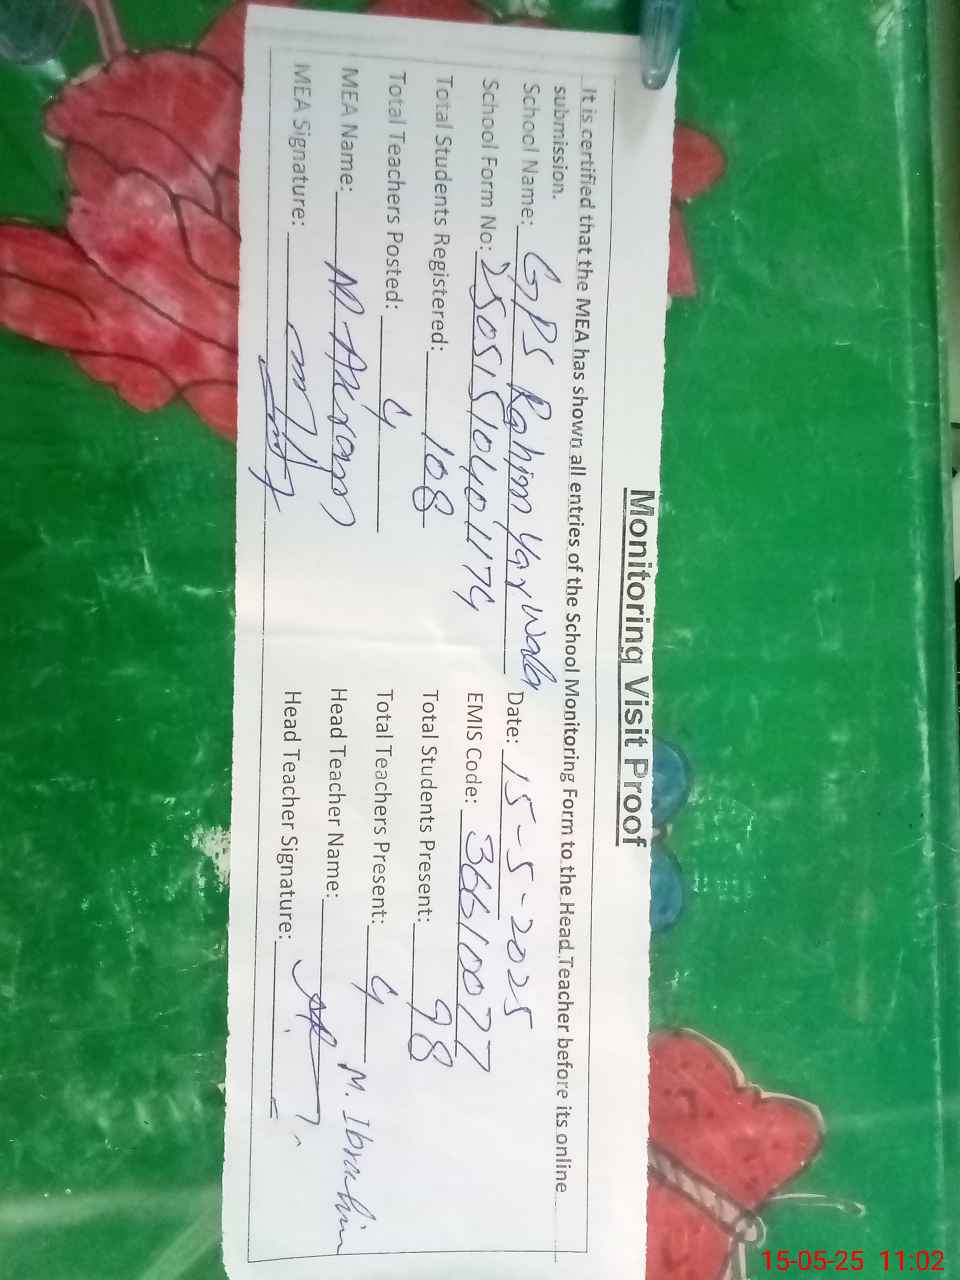 Monitoring Visit Proof
It is certified that the MEA has shown all entries of the School Monitoring Form to the Head Teacher before its online
submission.
School Name: GPS Rahim Yar Wala Date: 15-5-2025
School Form No: 25051510401174 EMIS Code: 36610027
Total Students Registered: 108 Total Students Present: 98
Total Teachers Posted: 4 Total Teachers Present: 4
MEA Name: M Akram Head Teacher Name: M. Ibrahim
MEA Signature: Head Teacher Signature:
15-05-25 11:02